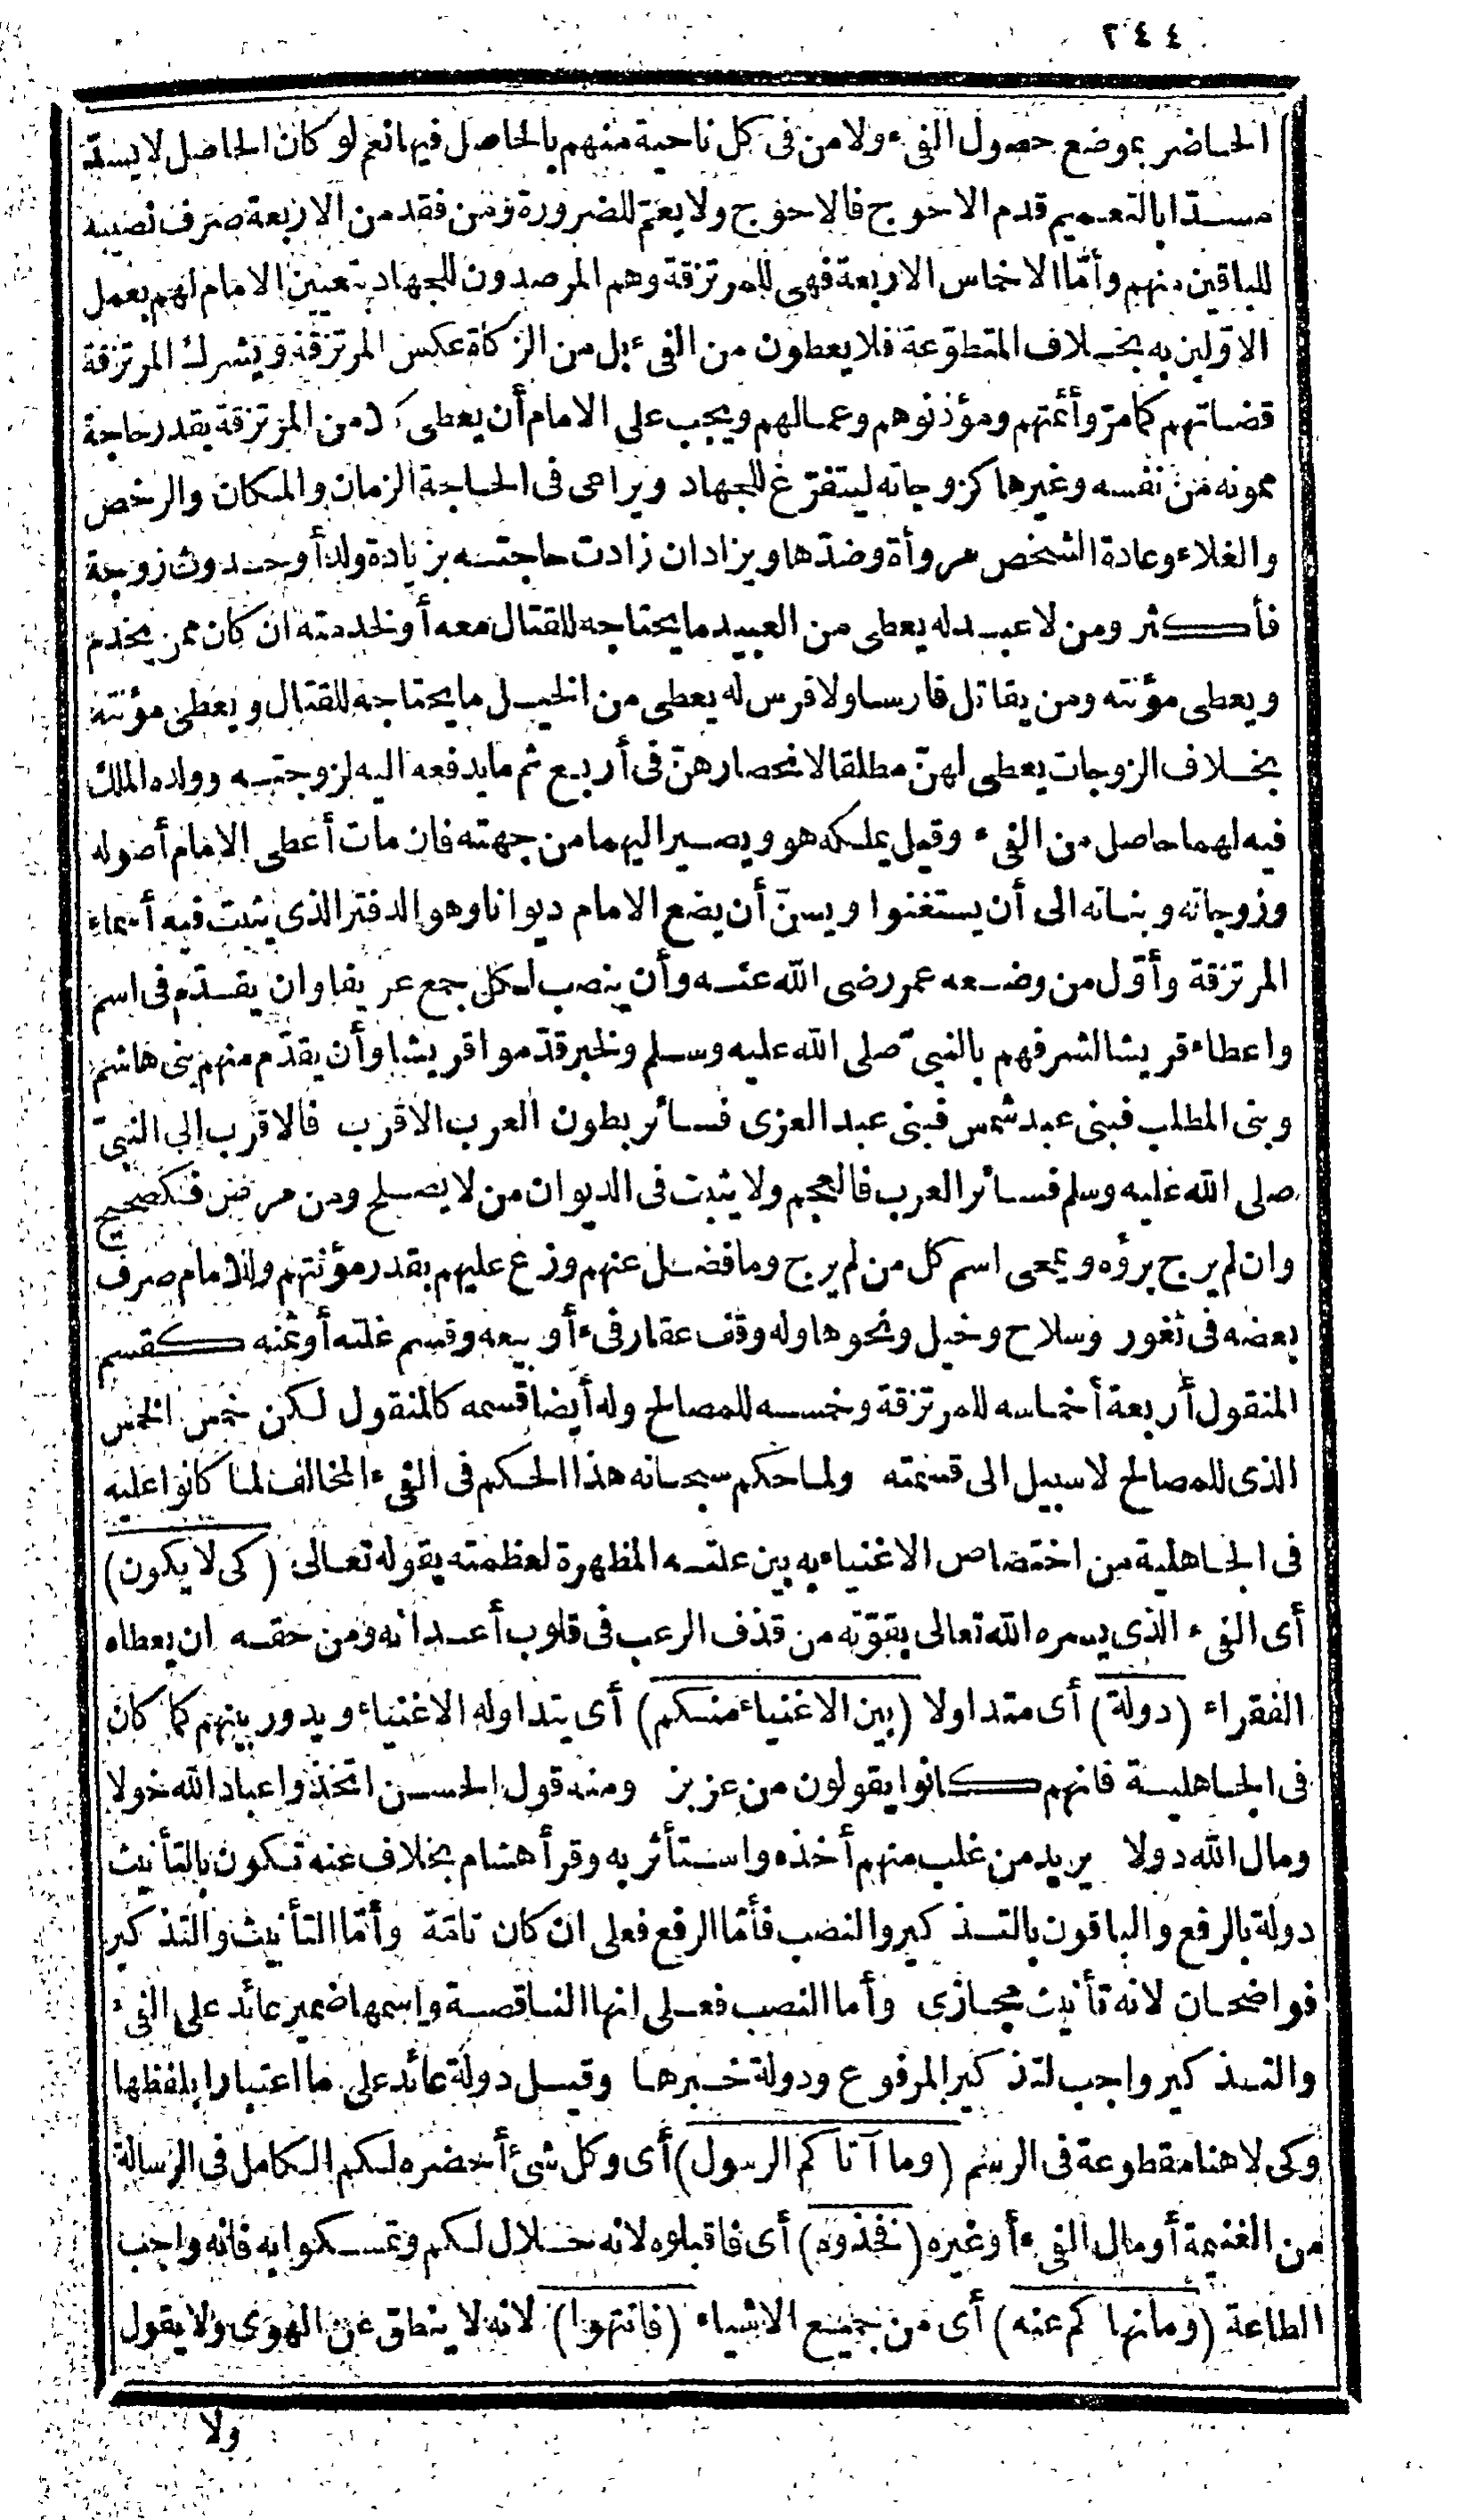 ٢٤٤
الحاضر بموضع حصول الفيء ولا من فى كل ناحية منهم بالحاصل فيها نعم لو كان الحاصل لا يسدّ
مسدّا بالتعميم قدم الاحوج فالاحوج ولا يعمّ للضرورة ومن فقد من الاربعة صرف نصيبه
للباقين منهم وأمّا الاخماس الاربعة فهى للمرتزقة وهم المرصدون للجهاد بتعيين الامام لهم بعمل
الاوّلين به بخلاف المتطوّعة فلا يعطون من الفيء بل من الزكاة عكس المرتزقة ويشرك المرتزقة
قضاتهم كما مرّ وأئمتهم ومؤذنوهم وعمالهم ويجب على الامام أن يعطى كلا من المرتزقة بقدر حاجة
ممونه من نفسه وغيرها كزوجاته ليتفرّغ للجهاد ويراعى فى الحاجة الزمان والمكان والرخص
والغلاء وعادة الشخص مروأة وضدّها ويزاد ان زادت حاجته بزيادة ولد أو حدوث زوجة
فأكثر ومن لا عبد له يعطى من العبيد ما يحتاجه للقتال معه أو لخدمته ان كان ممن يخدم
ويعطى مؤنته ومن يقاتل فارسا ولا فرس له يعطى من الخيل ما يحتاجه للقتال ويعطى مؤنته
بخلاف الزوجات يعطى لهنّ مطلقا لانحصارهنّ فى أربع ثم ما يدفعه اليه لزوجته وولده الملك
فيه لهما حاصل من الفيء وقيل يملكه هو ويصير اليهما من جهته فان مات أعطى الامام أصوله
وزوجاته وبناته الى أن يستغنوا ويسنّ أن يضع الامام ديوانا وهو الدفتر الذى يثبت فيه أسماء
المرتزقة وأوّل من وضعه عمر رضى الله عنه وأن ينصب لكل جمع عريفا وان يقدّم فى اسم
واعطاء قريشا لشرفهم بالنبىّ صلى الله عليه وسلم ولخبر قدّموا قريشا وأن يقدّم منهم بنى هاشم
وبنى المطلب فبنى عبد شمس فبنى عبد العزى فسائر بطون العرب الاقرب فالاقرب إلى النبىّ
صلى الله عليه وسلم فسائر العرب فالعجم ولا يثبت فى الديوان من لا يصلح ومن مرض فكصحيح
وان لم يرج برؤه ويمحى اسم كل من لم يرج وما فضل عنهم وزع عليهم بقدر مؤنتهم وللامام صرف
بعضه فى ثغور وسلاح وخيل ونحوها وله وقف عقار فيء أو بيعه وقسم غلته أو ثمنه كقسم
المنقول أربعة أخماسه للمرتزقة وخمسه للمصالح وله أيضا قسمه كالمنقول لكن خمس الخمس
الذى للمصالح لا سبيل الى قسمته ولما حكم سبحانه هذا الحكم فى الفيء المخالف لما كانوا عليه
فى الجاهلية من اختصاص الاغنياء به بين علته المظهرة لعظمته بقوله تعالى (كى لا يكون)
أى الفيء الذى يسره الله تعالى بقوّته من قذف الرعب فى قلوب أعدائه ومن حقه ان يعطاه
الفقراء (دولة) أى متداولا (بين الاغنياء منكم) أى يتداوله الاغنياء ويدور بينهم كما كان
فى الجاهلية فانهم كانوا يقولون من عز بز ومنه قول الحسن اتخذوا عباد الله خولا
ومال الله دولا يريد من غلب منهم أخذه واستأثر به وقرأ هشام بخلاف عنه تكون بالتأنيث
دولة بالرفع والباقون بالتذكير والنصب فأمّا الرفع فعلى ان كان تامّة وأمّا التأنيث والتذكير
فواضحان لانه تأنيث مجازى وأما النصب فعلى انها الناقصة واسمها ضمير عائد على الفيء
والتذكير واجب لتذكير المرفوع ودولة خبرها وقيل دولة عائد على ما اعتبارا بلفظها
وكى لا هنا مقطوعة فى الرسم (وما آتاكم الرسول) أى وكل شئ أحضره لكم الكامل فى الرسالة
من الغنيمة أو مال الفيء أو غيره (فخذوه) أى فاقبلوه لانه حلال لكم وتمسكوا به فانه واجب
الطاعة (وما نهاكم عنه) أى من جميع الاشياء (فانتهوا) لانه لا ينطق عن الهوى ولا يقول
ولا